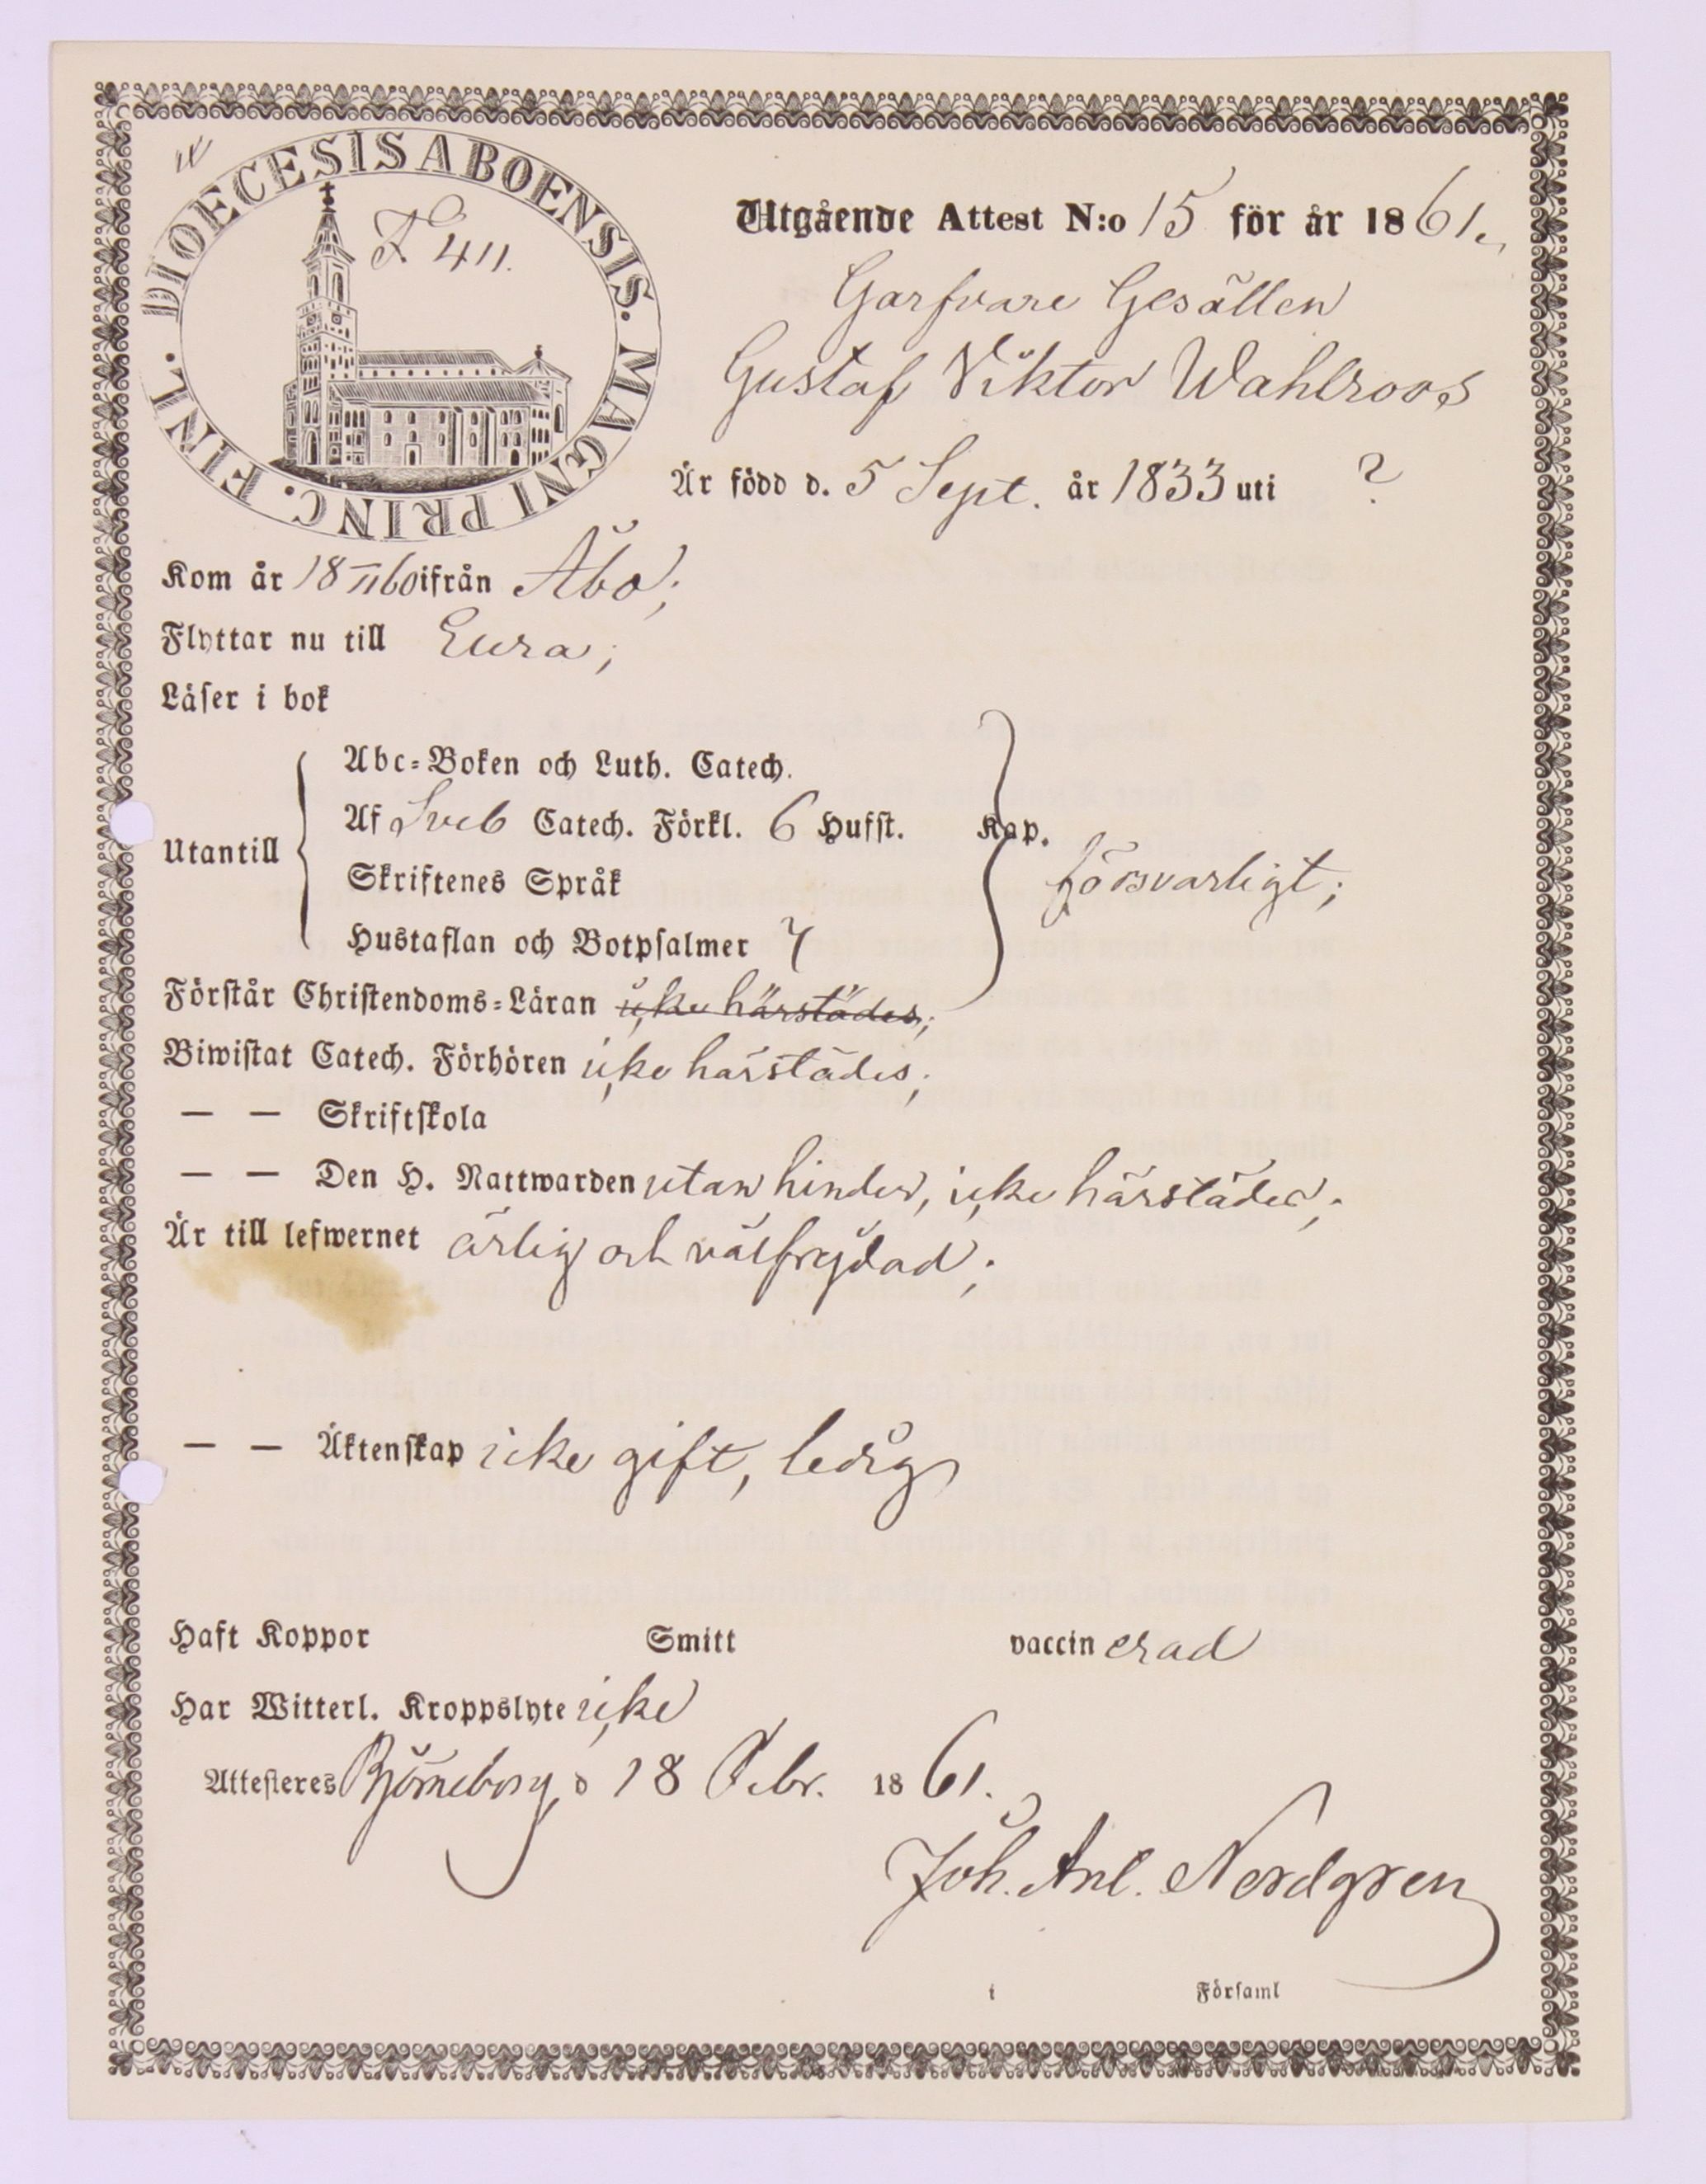 DIOECESIS ABOENSIS. MAGNI PRINC. FINL.
F 411.
Utgående Attest N:o 15 för år 1861.
Garfvare Gesällen
Gustaf Viktor Wahlroos
Är född d. 5 Sept. år 1833 uti ?
Kom år 18 11/60 ifrån Åbo;
Flyttar nu till Eura;
Läser i bok
Abc-Boken och Luth. Catech.
Af Sveb Catech. Förkl. 6 Hufst. Kap.
Utantill
försvarligt;
Skriftenes Språk
Hustaflan och Botpsalmer 7
Förstår Christendoms-Läran icke härstädes;
Biwistat Catech. Förhören icke härstädes;
— — Skriftskola
— — Den H. Nattwarden utan hinder, icke härstädes;
Är till lefwernet ärlig och välfrejdad;
— — Äktenskap icke gift, ledig
Haft Koppor Smitt vaccinerad
Har Witterl. Kroppslyte icke
Attesteres Björneborg d 18 Febr. 1861.
Joh. Nordgren
i Församl